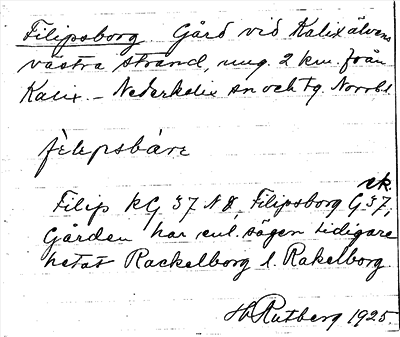 Filipsborg Gård vid Kalix älvens
västra strand, ung. 2 km. från
Kalix. – Nederkalix sn och tg. Norrb.
fìlepsbáre
ek.
Filip KG 37 N 8, Filipsborg G 37,
Gården har enl. sägen tidigare
hetat Rackelborg l. Rakelborg
H. Rutberg 1925.